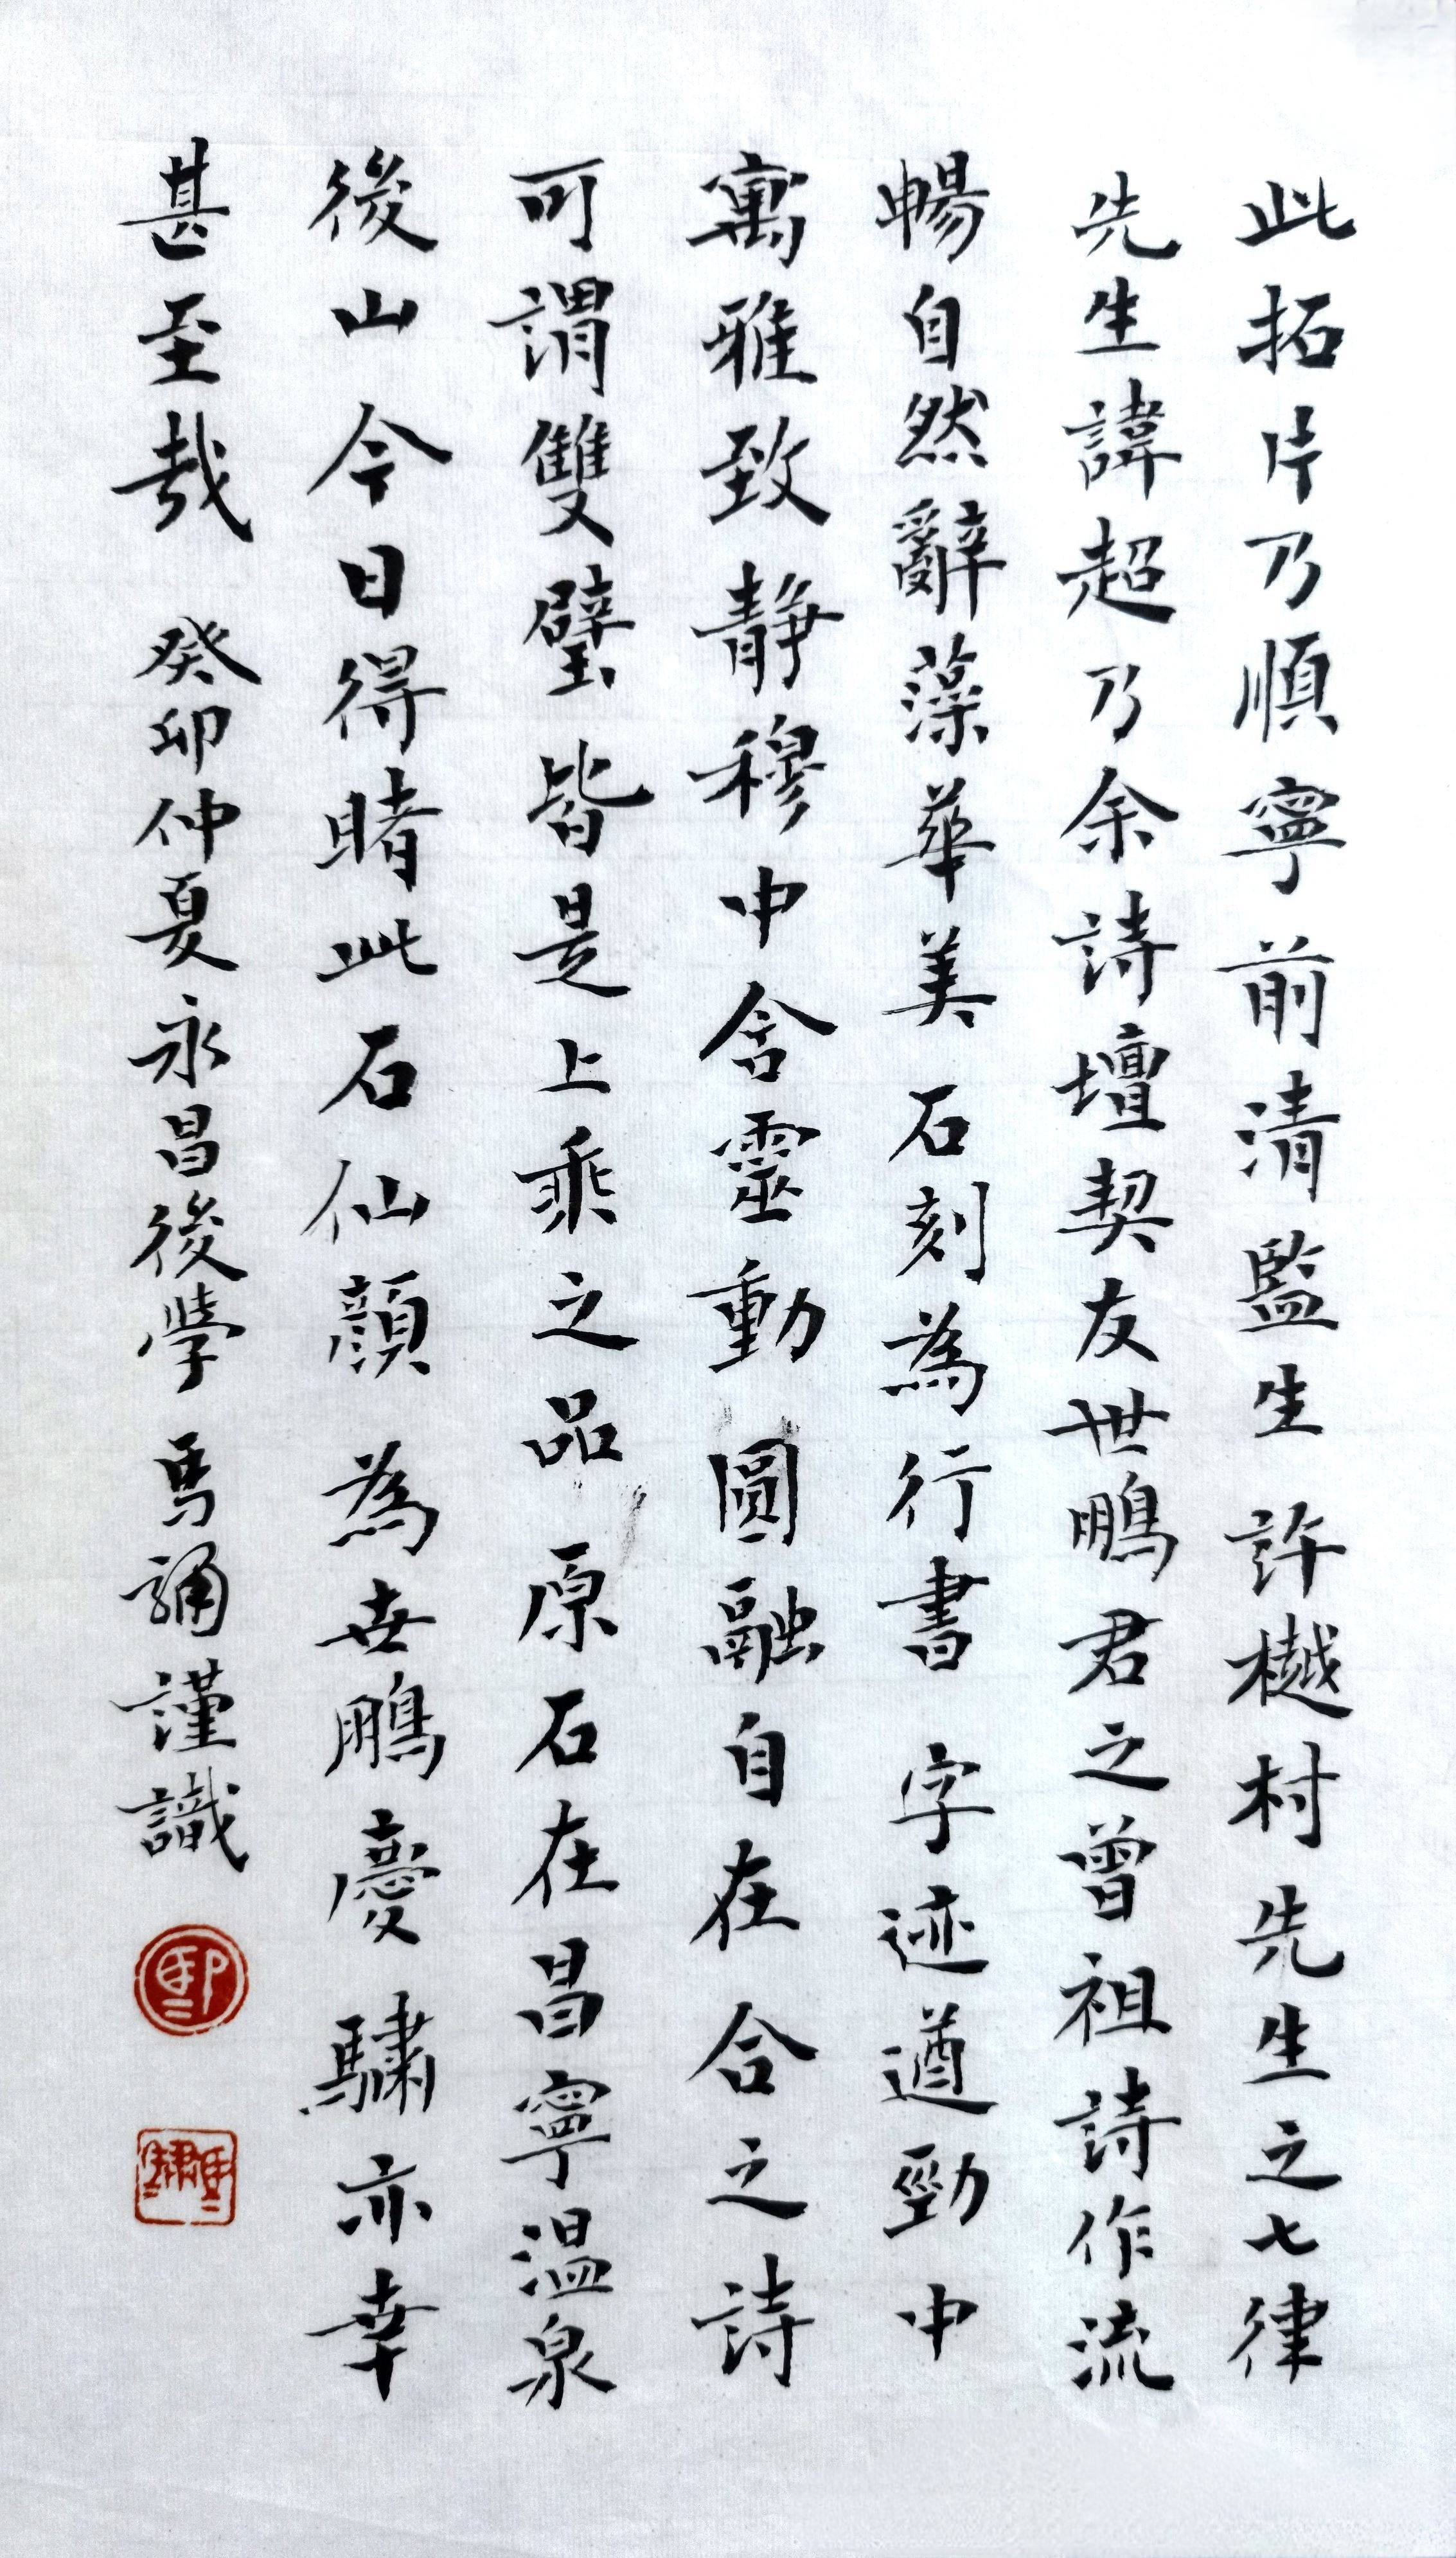 此拓片乃順寧前清監生許樾村先生之七律
先生諱超乃余詩壇契友世鵬君之曾祖詩作流
暢自然辭藻華美石刻為行書字迹遒勁中
寓雅致靜穆中含靈動圓融自在合之詩
可謂雙璧皆是上乘之品原石在昌寧温泉
後山今日得睹此石仙顏為世鵬慶驌亦幸
甚至哉 癸卯仲夏永昌後學馬誦謹識